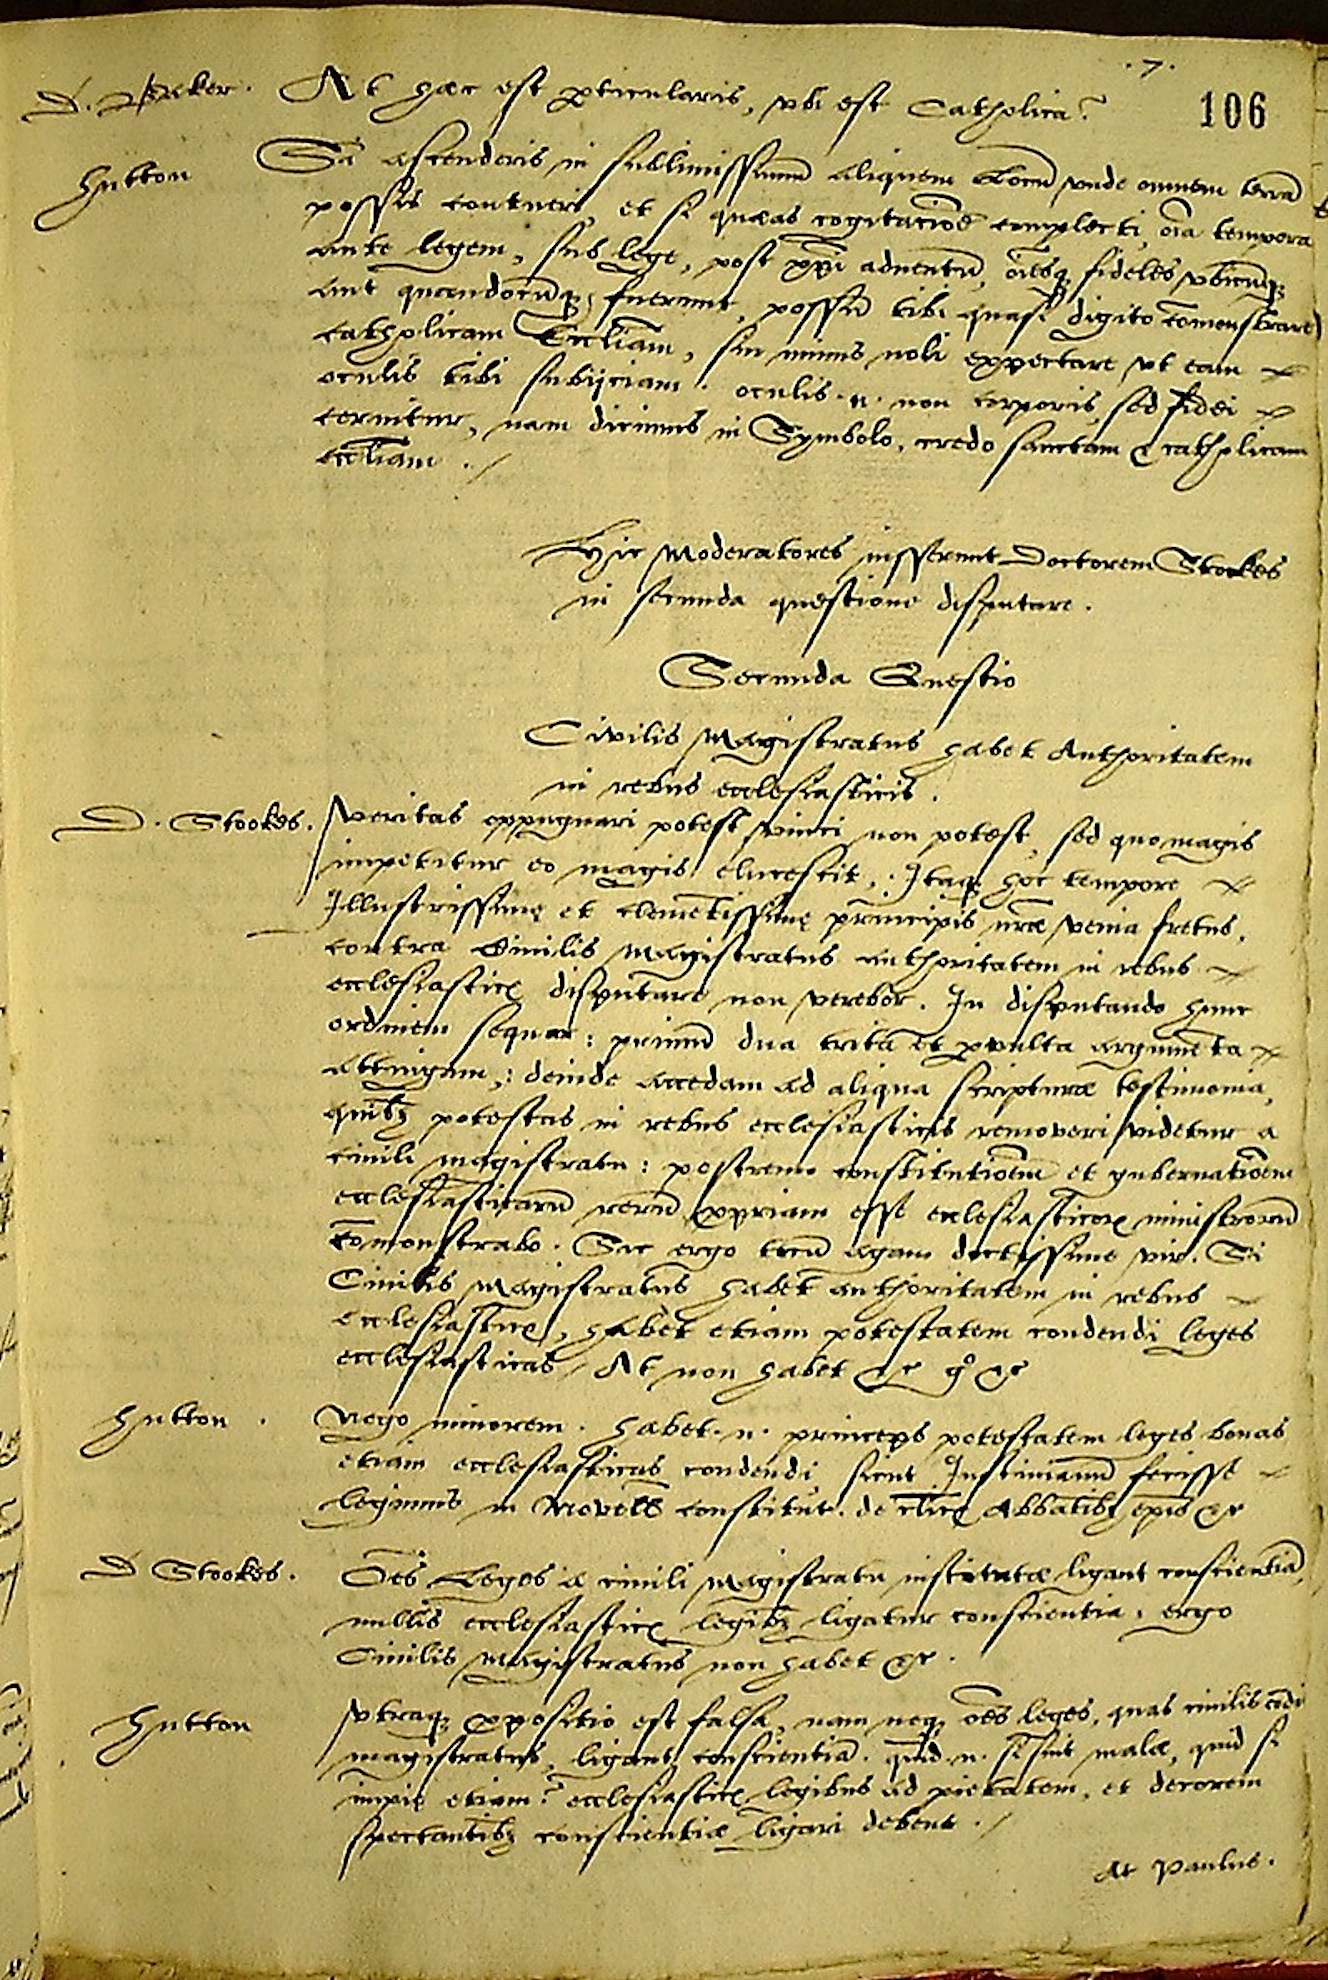 .7.
106
D. Perker. At hæc est pticularis, vbi est Catholica?
Hutton Sã ascenderis in sublimissimum aliquem Locũ vnde omnem terrã
possis contueri, et si quæas cogitaciõe complecti, oĩa tempora
ante legem, sub lege, post xpĩ aduentũ, oẽsq; fideles vbicũq;
aut quandocũq; fuerunt, possũ tibi quasi digito comonstrare
catholicam Eccliam, sin minus noli expectare vt eam
oculis tibi subijciam. oculis .n. non corporis, sed fidei
cernitur, nam dicimus in Symbolo, credo sanctam & catholicam
eccliam ./
Hic Moderatores iusserunt Doctorem Stookes
in secunda questione disputare.
Secunda Questio
Civilis Magistratus habet Authoritatem
in rebus ecclesiasticis.
D. Stookes. Veritas oppugnari potest vinci non potest, sed quo magis
impetitur eo magis elucescit, : Itaq; hoc tempore
Illustrissimę et clemẽtissimę principis nrã venia fretus,
contra Ciuilis Magistratus authoritatem in rebus
ecclesiasticę disputare non verebor. In disputando hunc
ordinem sequar: primũ dua trita et pvulta argumẽta
attingam,: deinde accedam ad aliqua scripturæ testimonia,
quib; potestas in rebus ecclesiasticis removeri videtur a
ciuili magistratu: postremo constitutionẽ et gubernatiõem
ecclesiasticarũ rerũ ppriam esse ecclesiasticorę ministrorũ
comonstrabo. Sic ergo tecũ agam doctissime vir. Si
Ciuilis Magistratus habet authoritatem in rebus
ecclesiasticę, habet etiam potestatem condendi leges
ecclesiasticas, At non habet &c gº &c
Hutton. Nego minorem. habet .n. princeps potestatem leges bonas
etiam ecclesiasticas condendi, sicut Justinianũ fecisse
legimus in Novell constitut. de clicę Abbatib; epis &c
D Stookes. Oẽs Leges a ciuili Magistratu institutæ ligant conscientiã,
nullis ecclesiasticę legib; ligatur conscientia, ergo
Ciuilis Magistratus non habet &c.
Hutton Vtraq; ppositio est falsa, nam neq; oẽs leges, quas ciuilis cõdit
magistratus, ligant conscientiã. quid .n. si sint malæ, quid si
impię etiam? ecclesiasticę legibus ad pietatem, et decorem
spectantib; conscientiæ ligari debent ./
At Paulus.